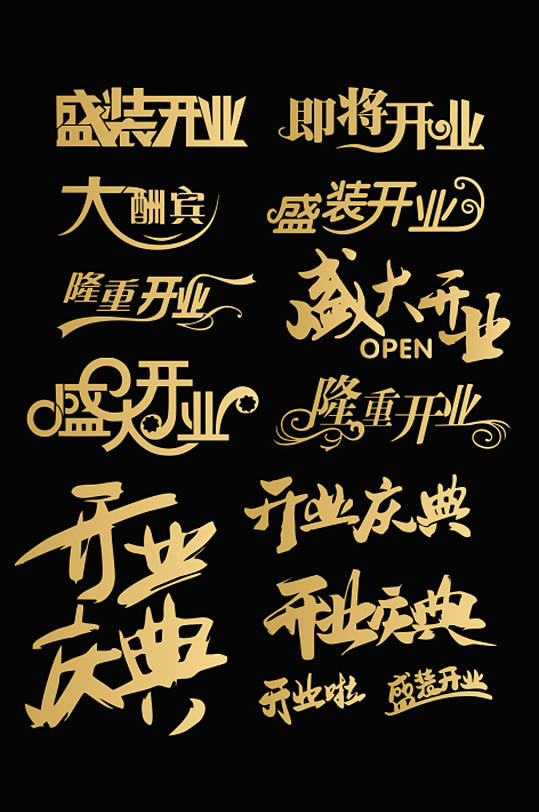 盛装开业
即将开业
大酬宾
盛装开业
隆重开业
盛大开业
OPEN
盛大开业
隆重开业
开业庆典
开业
庆典
开业庆典
开业啦
盛装开业